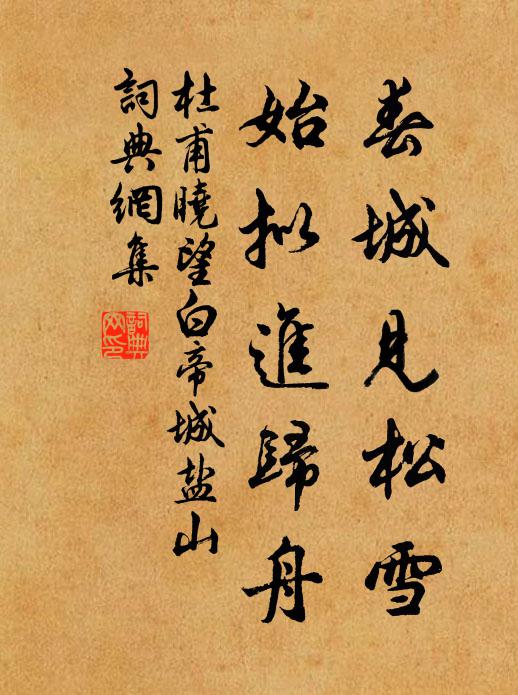 春城見松雪
始拟進歸舟
杜甫曉望白帝城盐山
詞典網集
詞典
网印